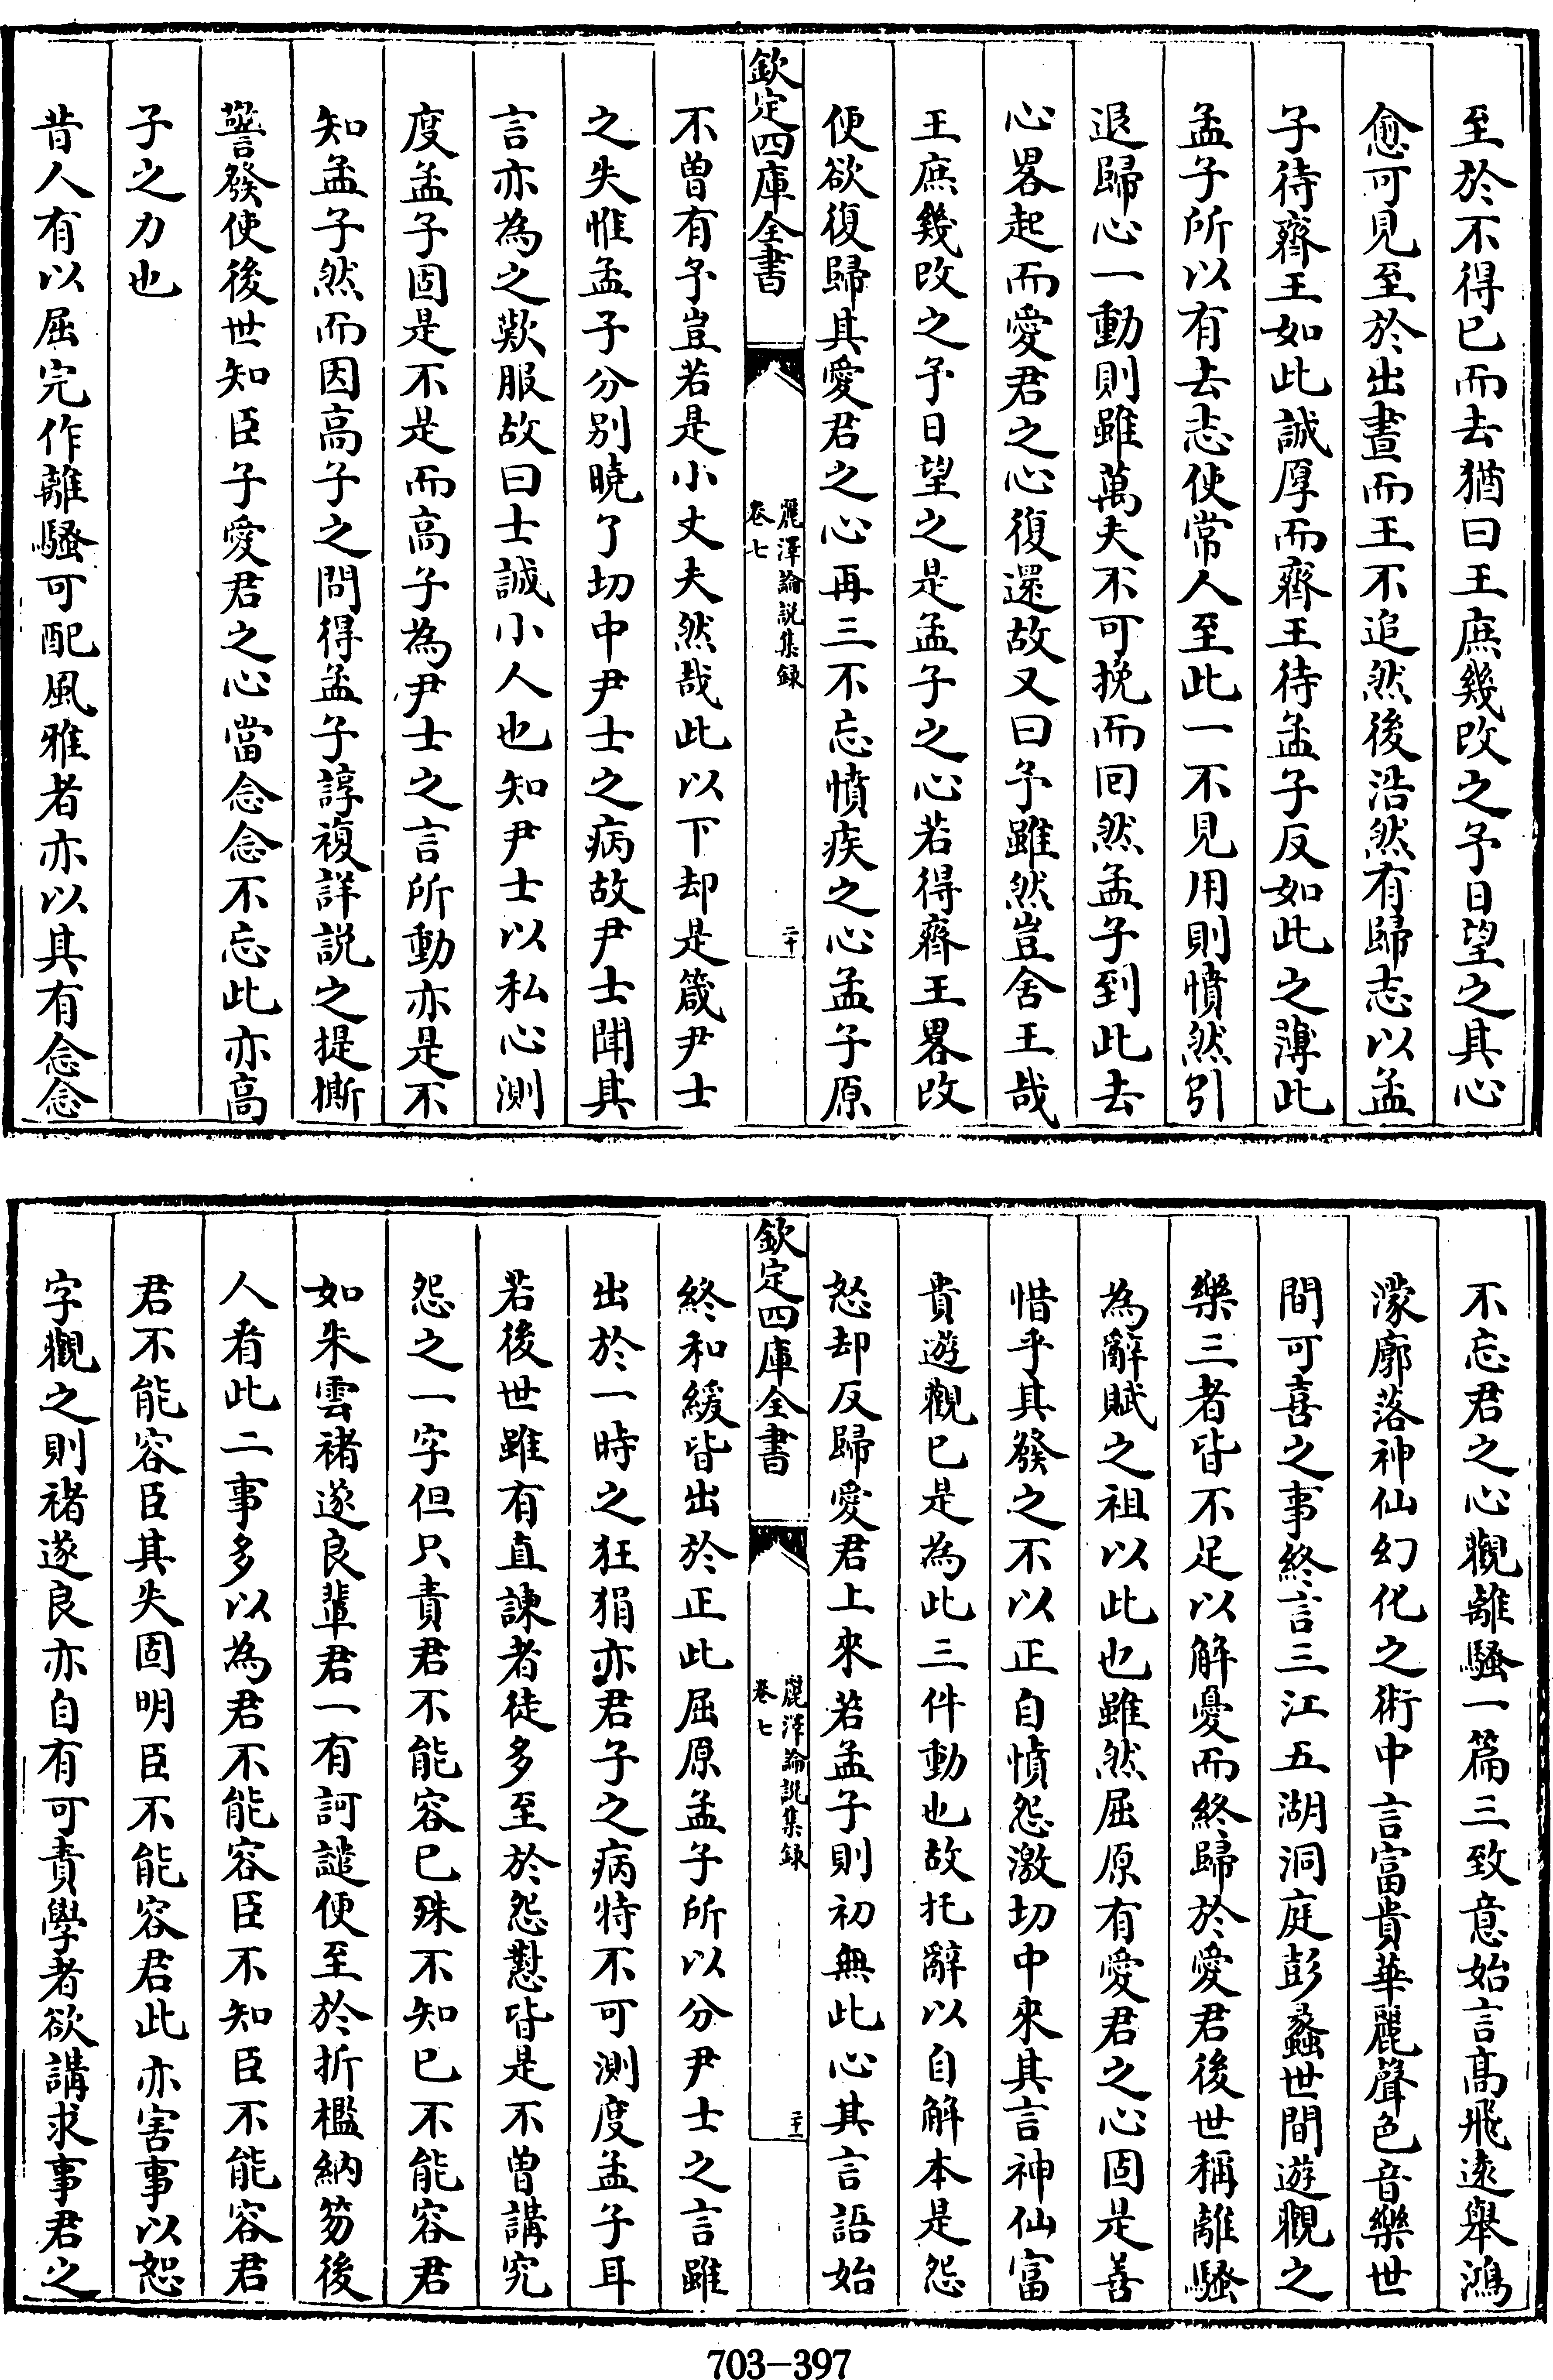 至於不得已而去猶曰王庶幾改之予日望之其心
愈可見至於出晝而王不追然後浩然有歸志以孟
子待齊王如此誠厚而齊王待孟子反如此之薄此
孟子所以有去志使常人至此一不見用則憤然引
退歸心一動則雖萬夫不可挽而回然孟子到此去
心畧起而愛君之心復還故又曰予雖然豈舍王哉
王庶幾改之予日望之是孟子之心若得齊王畧改
便欲復歸其愛君之心再三不忘憤疾之心孟子原
欽定四庫全書
麗澤論説集録
卷七
二十
不曽有予豈若是小丈夫然哉此以下却是箴尹士
之失惟孟子分別曉了切中尹士之病故尹士聞其
言亦為之歎服故曰士誠小人也知尹士以私心測
度孟子固是不是而高子為尹士之言所動亦是不
知孟子然而因高子之問得孟子諄複詳説之提撕
警發使後世知臣子愛君之心當念念不忘此亦高
子之力也
昔人有以屈完作離騷可配風雅者亦以其有念念
不忘君之心觀離騷一篇三致意始言髙飛遠舉鴻
濛廓落神仙幻化之術中言富貴華麗聲色音樂世
間可喜之事終言三江五湖洞庭彭蠡世間遊觀之
樂三者皆不足以解憂而終歸於愛君後世稱離騷
為辭賦之祖以此也雖然屈原有愛君之心固是善
惜乎其發之不以正自憤怨激切中來其言神仙富
貴遊觀已是為此三件動也故托辭以自解本是怨
怒却反歸愛君上來若孟子則初無此心其言語始
欽定四庫全書
麗澤論説集録
卷七
二十一
終和緩皆出於正此屈原孟子所以分尹士之言雖
出於一時之狂狷亦君子之病特不可測度孟子耳
若後世雖有直諫者徒多至於怨懟皆是不曽講究
怨之一字但只責君不能容已殊不知已不能容君
如朱雲褚遂良輩君一有訶譴便至於折檻納笏後
人看此二事多以為君不能容臣不知臣不能容君
君不能容臣其失固明臣不能容君此亦害事以恕
字觀之則褚遂良亦自有可責學者欲講求事君之
703-397